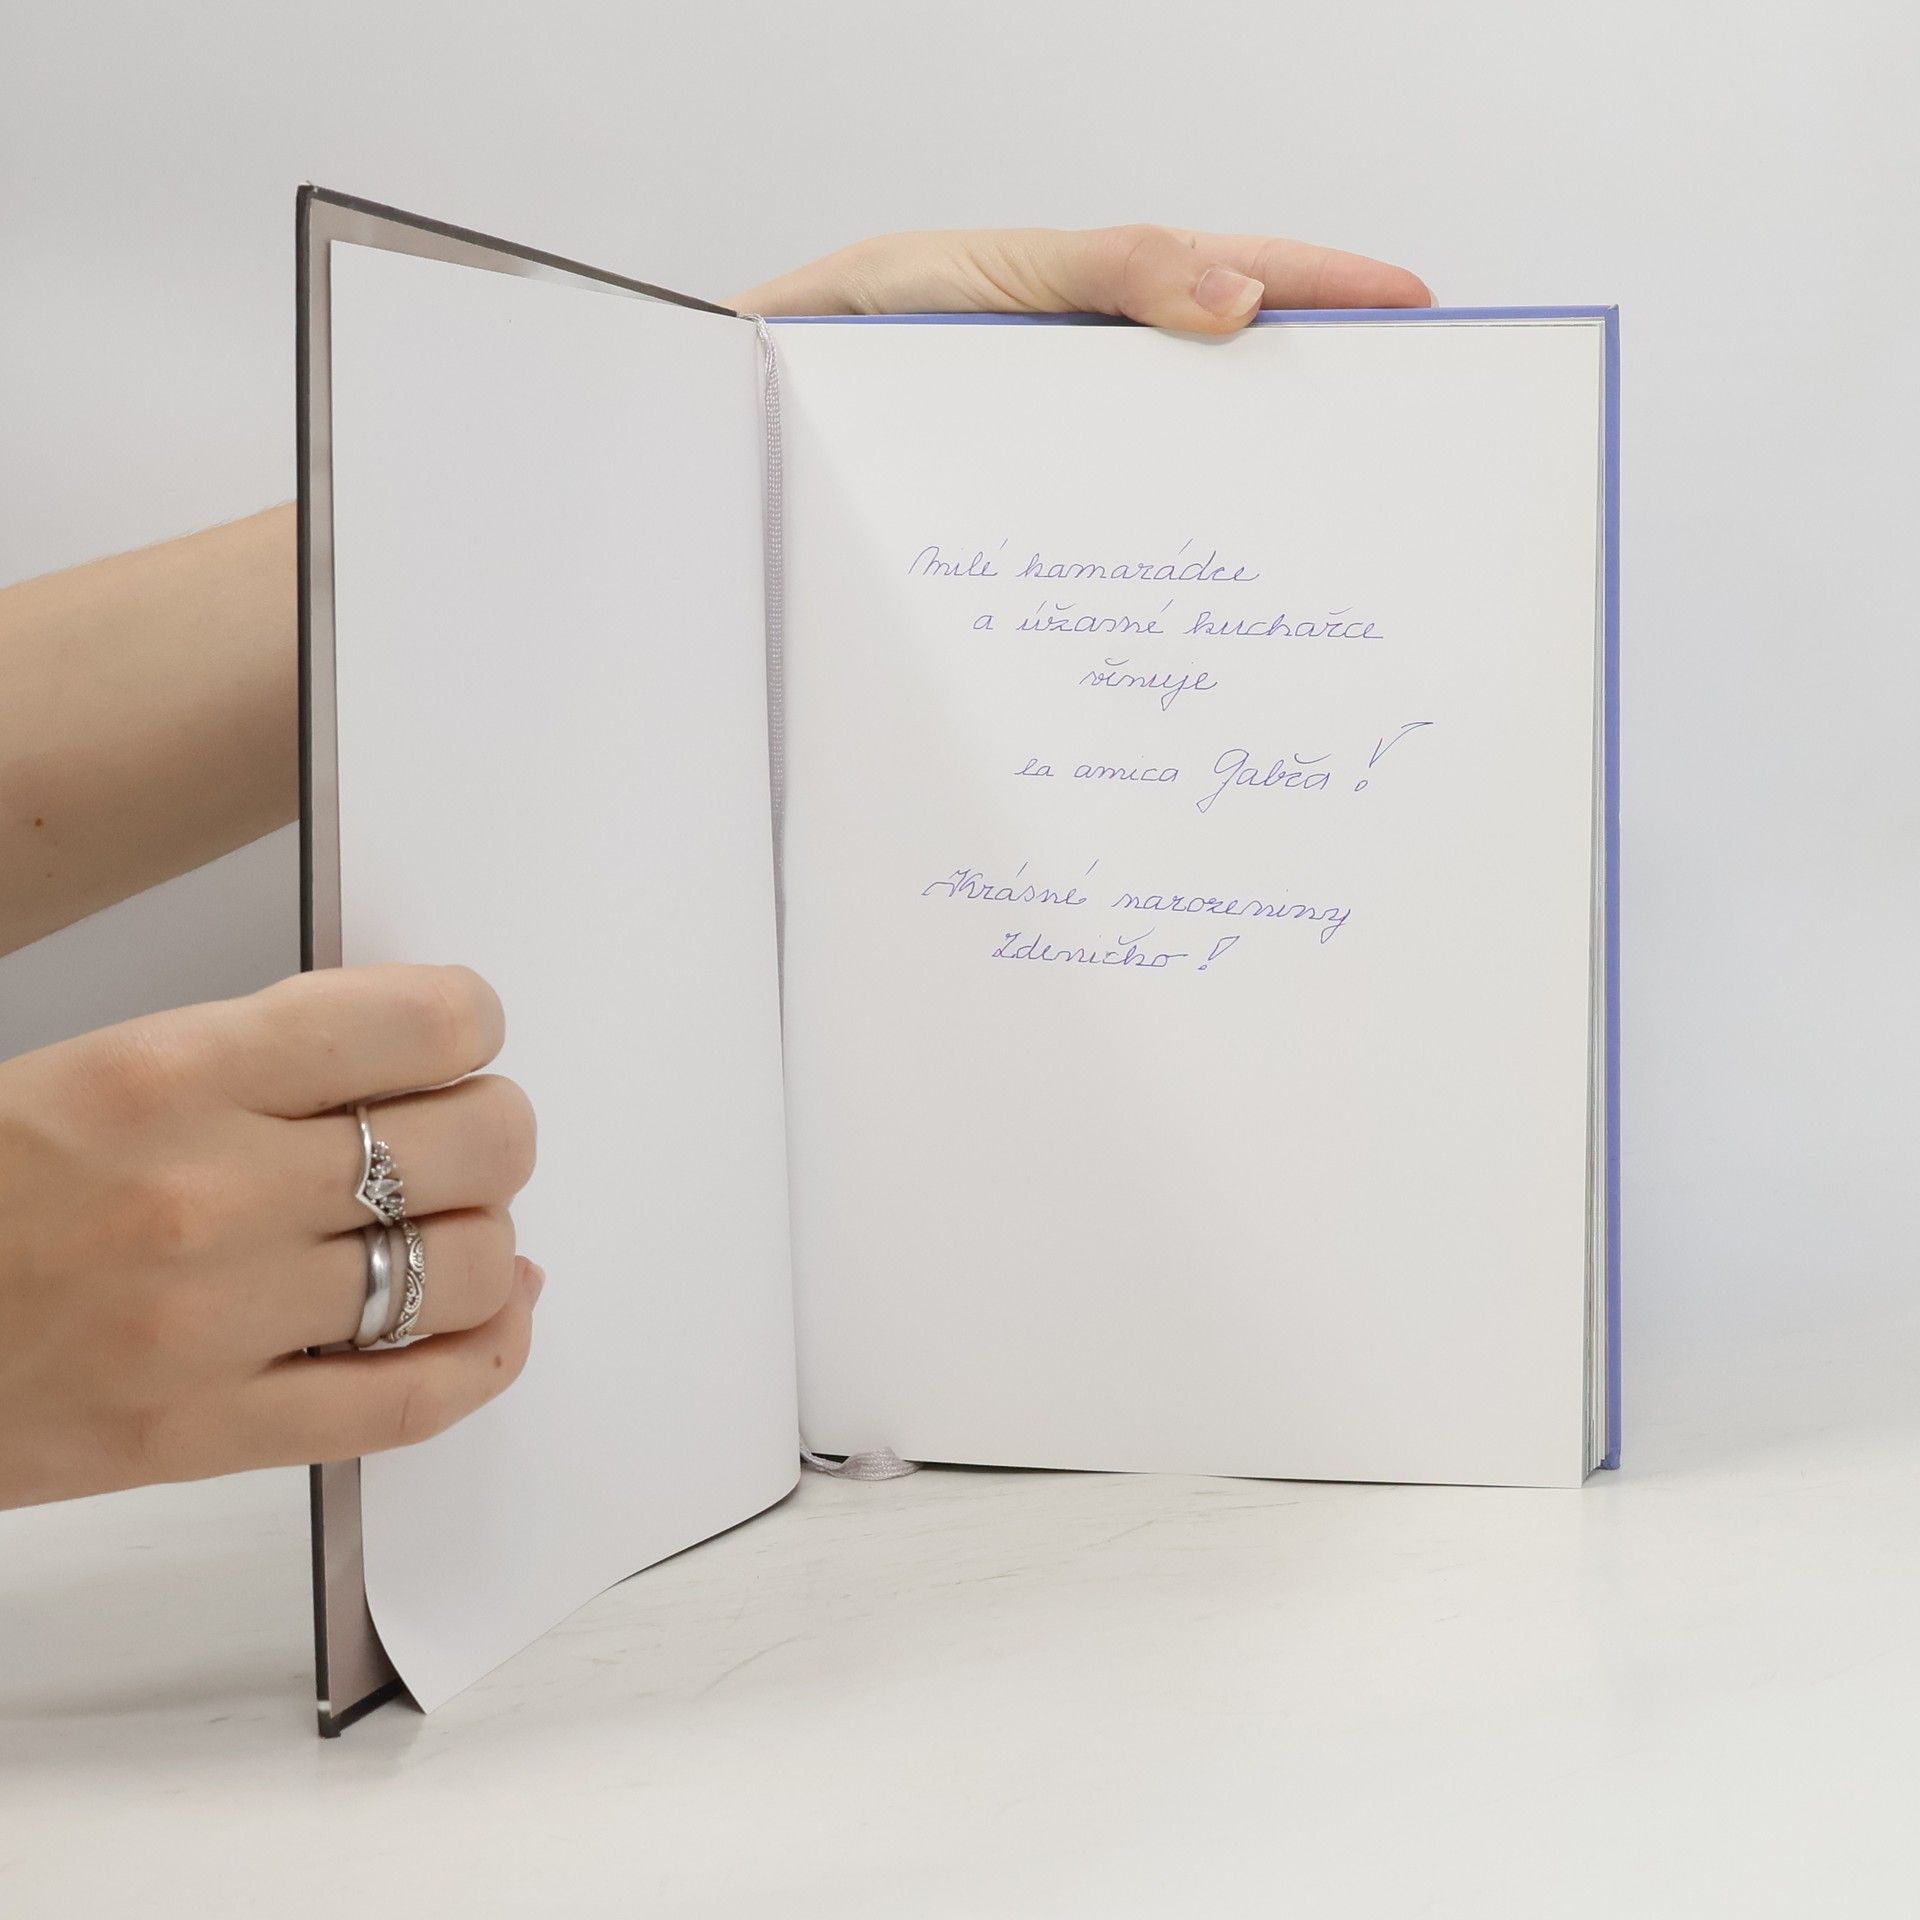 Milé kamarádce
a úžasné kuchařce
věnuje
la amica Gabča!
Krásné narozeniny
Zdeničko!